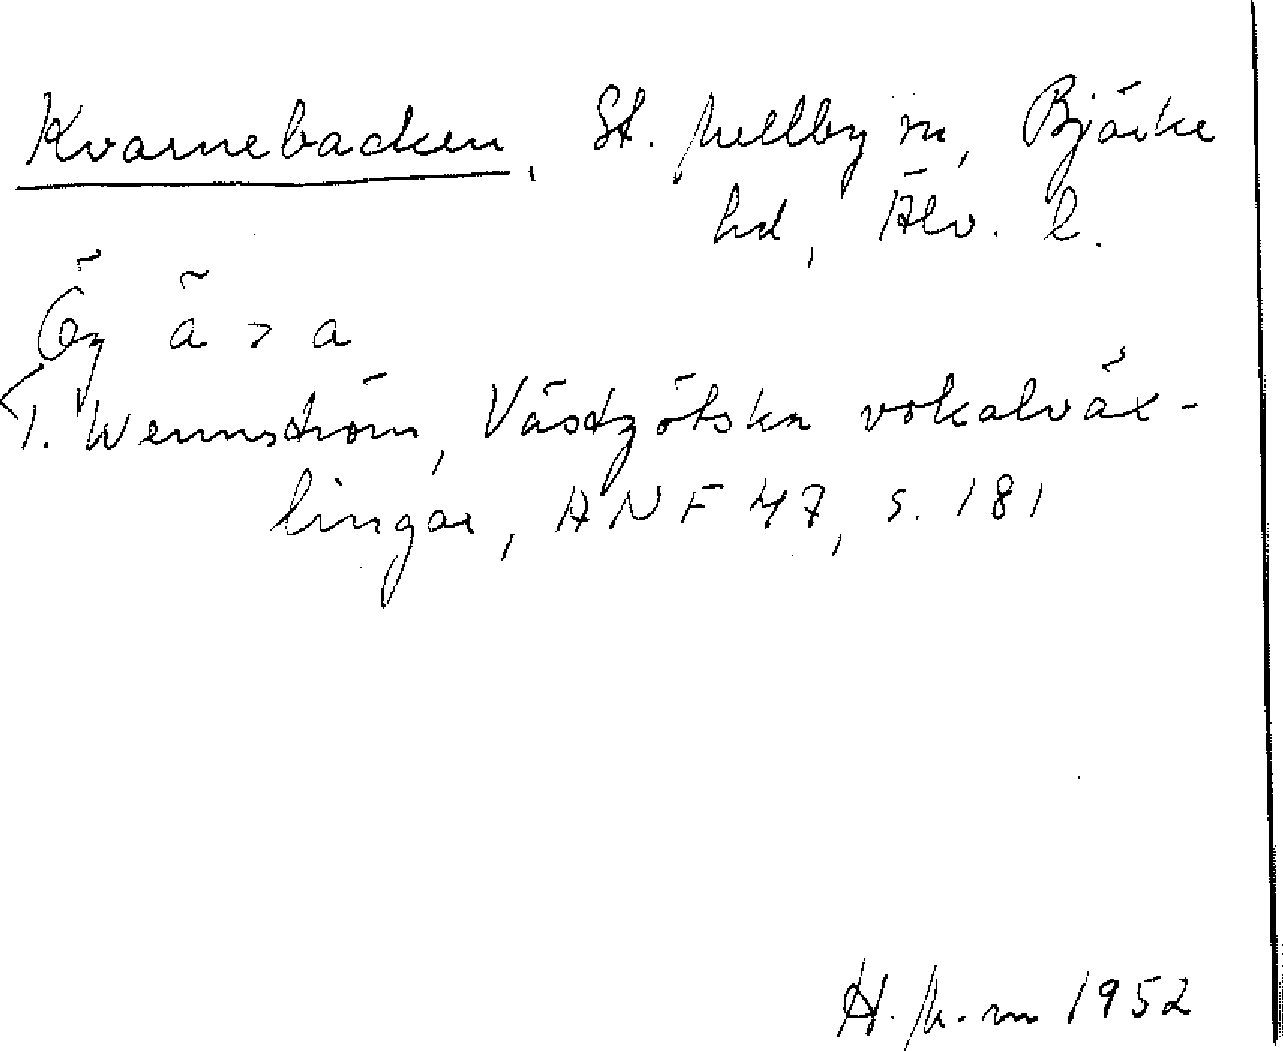 Kvarnebacken, St. Mellby sn, Bjärke
hd, Älv. l.
Övg ä > a
T. Wennström, Västgötska vokalväx-
lingar, ANF 47, s. 181
H. M-m 1952